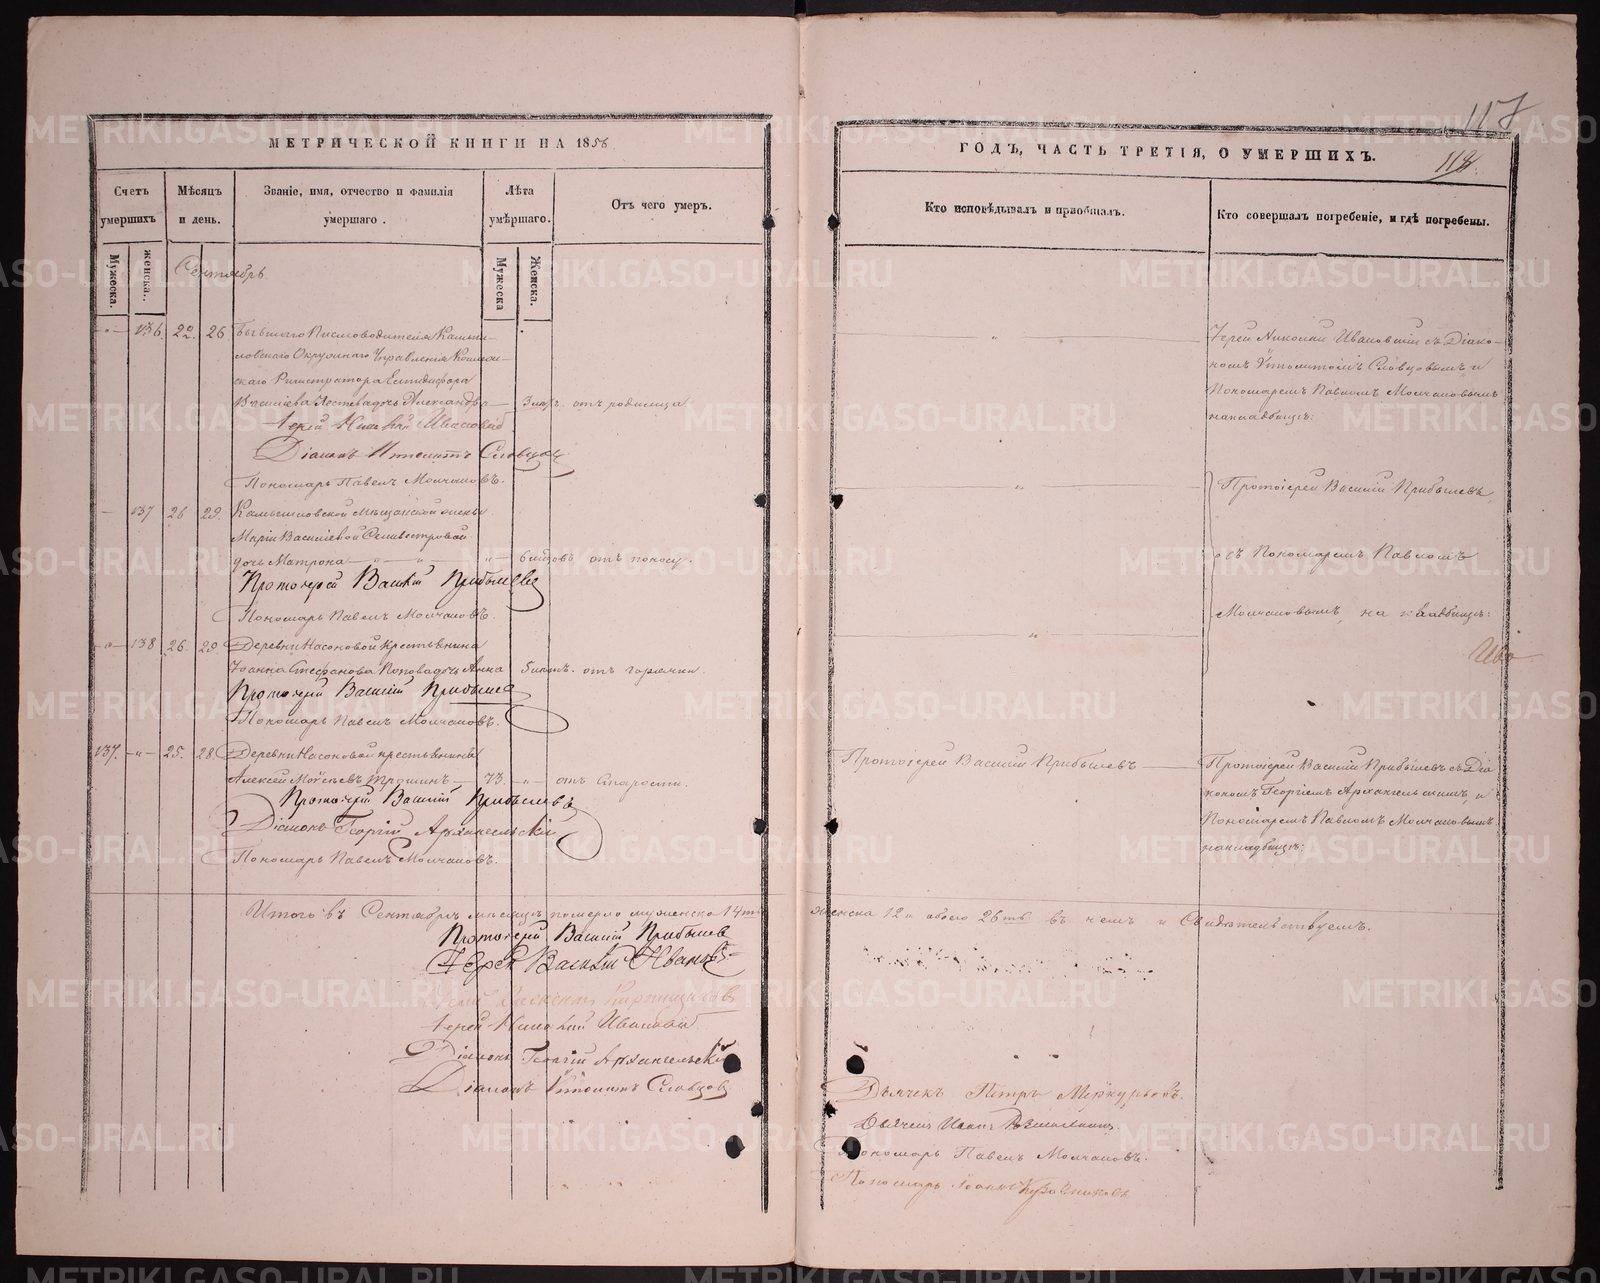 117
МЕТРИЧЕСКОЙ КНИГИ НА 1856
ГОДЪ, ЧАСТЬ ТРЕТІЯ, О УМЕРШИХЪ.
118.
Счетъ умершихъ
Мѣсяцъ и день.
Званіе, имя, отчество и фамилія умершаго.
Лѣта умѣршаго.
Отъ чего умеръ.
Кто исповѣдывалъ и приобщалъ.
Кто совершалъ погребеніе, и гдѣ погребены.
Мужеска.
женска.
Мужеска
Женска.
Сентябрь
136 22. 26 Бывшаго Письмоводителя Камыш-
ловскаго Окружнаго Управленія Коллеж-
скаго Регистратора
дочь Александра — отъ родимца
Іерей Николай Ивановскій
Діаконъ Ипполитъ Словцовъ
Пономарь Павелъ Молчановъ.
Іерей Николай Ивановскій съ Діако-
номъ Ипполитомъ Словцовымъ и
Пономаремъ Павломъ Молчановымъ
на кладбищѣ:
137 26 29. Камышловской Мѣщанской жены
Маріи Васильевой Селивестровой
дочь Матрона — 6 мѣсцовъ отъ поносу.
Протоіерей Василій Прибылевъ
Пономарь Павелъ Молчановъ.
Протоіерей Василій Прибылевъ
съ Пономаремъ Павломъ
Молчановымъ, на кладбищѣ:
138 26. 29 Деревни Насоновой Крестьянина
Іоанна Стефанова Попова дочь Анна 5 лѣтъ. отъ горячки.
Протоіерей Василій Прибылевъ
Пономарь Павелъ Молчановъ.
137. 25. 28 Деревни Насоновой крестьянинъ
Алексѣй Моисеевъ Трошинъ — 73 отъ старости.
Протоіерей Василій Прибылевъ
Діаконъ Георгій Архангельскій
Пономарь Павелъ Молчановъ.
Протоіерей Василій Прибылевъ
Протоіерей Василій Прибылевъ съ Діа
кономъ Георгіемъ Архангельскимъ, и
Пономаремъ Павломъ Молчановымъ
на кладбищѣ:
Итого въ Сентябрѣ мѣсяцѣ померло мужеска 14ть женска 12 а обоего 26ть въ чемъ и Свидѣтельствуемъ.
Протоіерей Василій Прибылевъ
Іерей Василій Ивановъ
Іерей Николай Ивановскій
Діаконъ Георгій Архангельскій
Діаконъ Ипполитъ Словцовъ
Дьячекъ Петръ Меркурьевъ.
Дьячекъ Иванъ
Пономарь Павелъ Молчановъ.
Пономарь Іоаннъ
METRIKI.GASO-URAL.RU